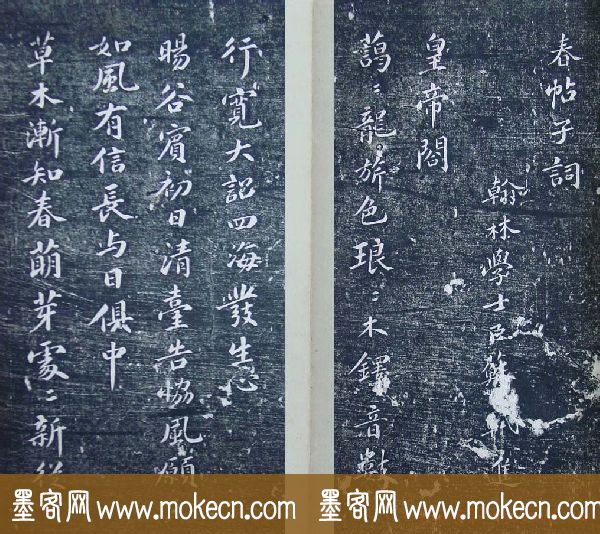 春帖子詞
翰林學士臣蘇軾進
皇帝閤
藹〻龍旂色琅〻木鐸音數
行寬大詔四海發生心
暘谷賓初日清臺告協風願
如風有信長与日俱中
草木漸知春萌芽處〻新從
墨客网 www.mokecn.com
墨客网 www.mokecn.com